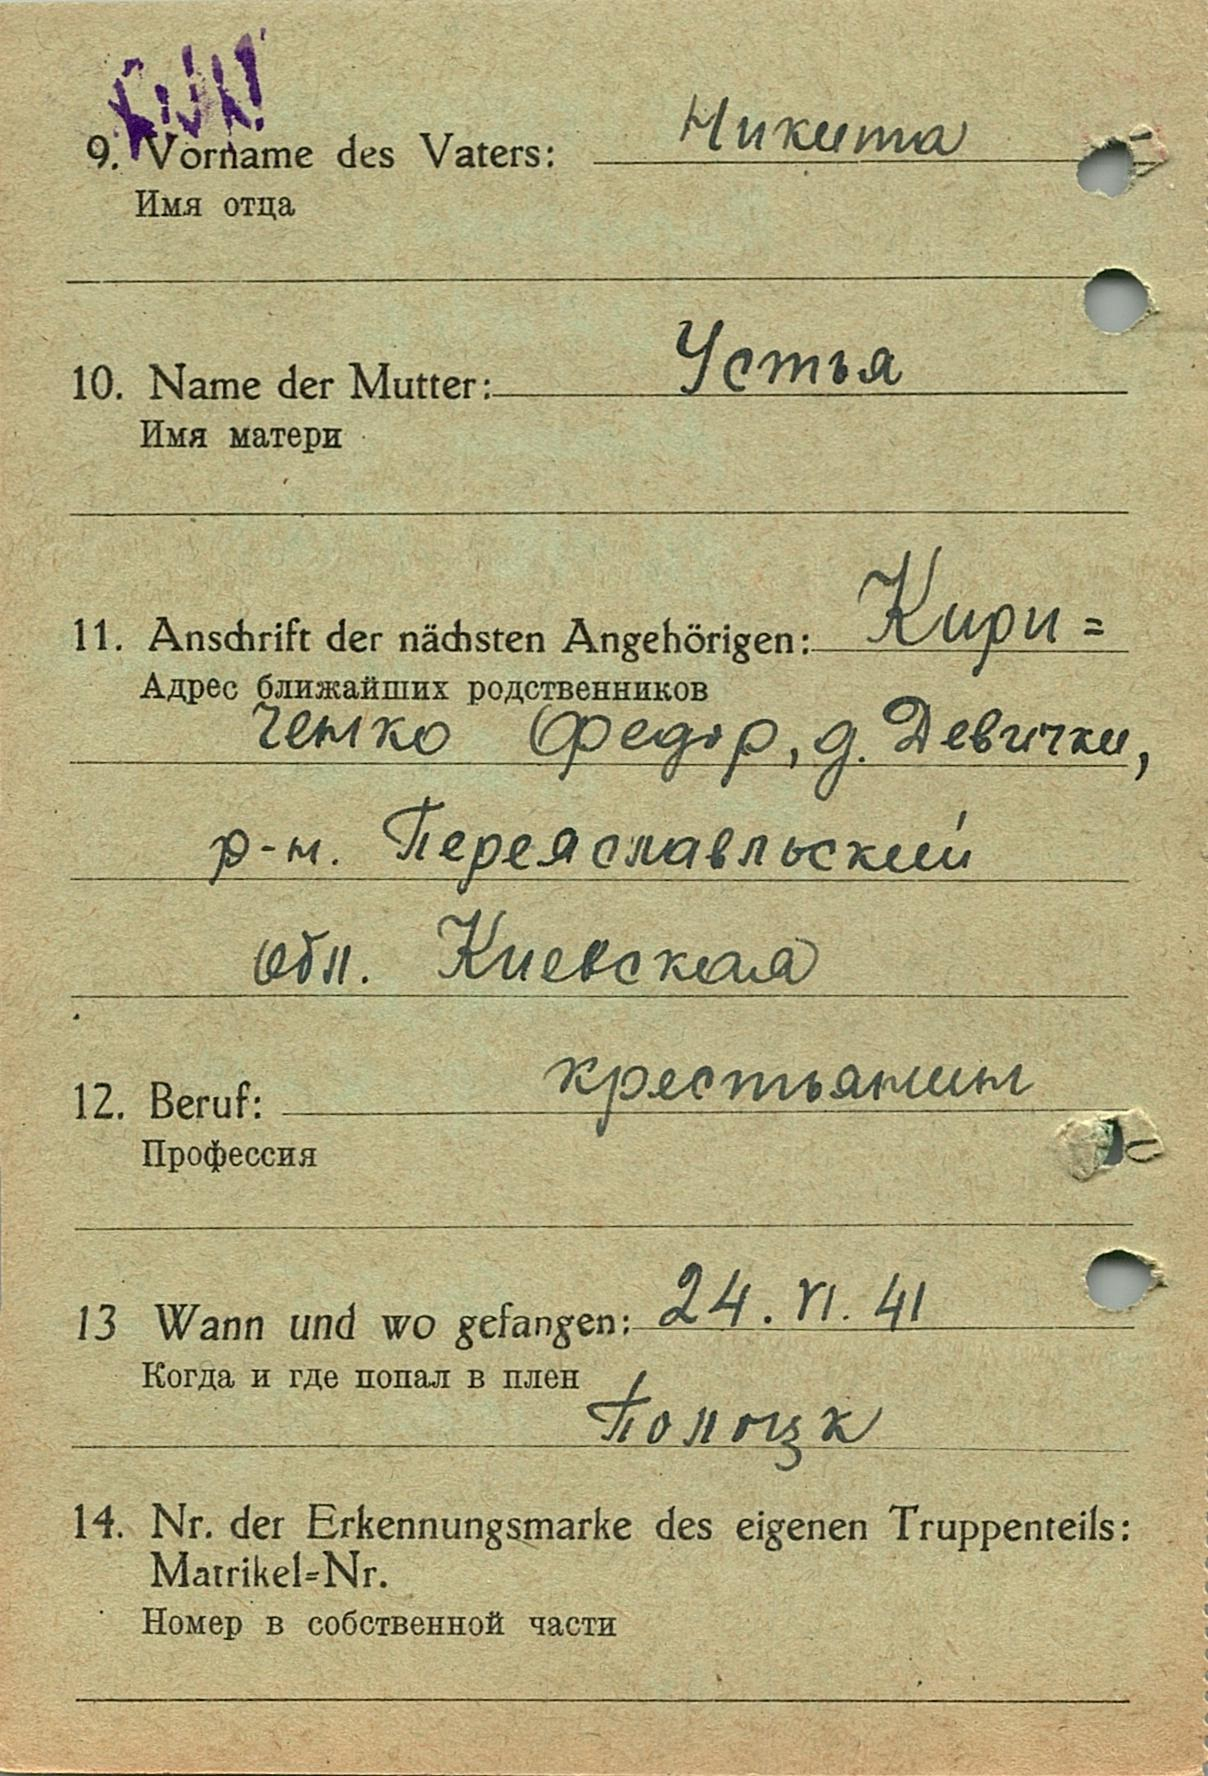 9. Vorname des Vaters: Никита
Имя отца
10. Name der Mutter: Устья
Имя матери
11. Anschrift der nächsten Angehörigen: Кири=
Адрес ближайших родственников
ченко Федор, д. Девички,
р-н. Переяславльский
обл. Киевская
12. Beruf: крестьянин
Профессия
13 Wann und wo gefangen: 24. VI. 41
Когда и где попал в плен
Полоцк
14. Nr. der Erkennungsmarke des eigenen Truppenteils:
Matrikel=Nr.
Номер в собственной части